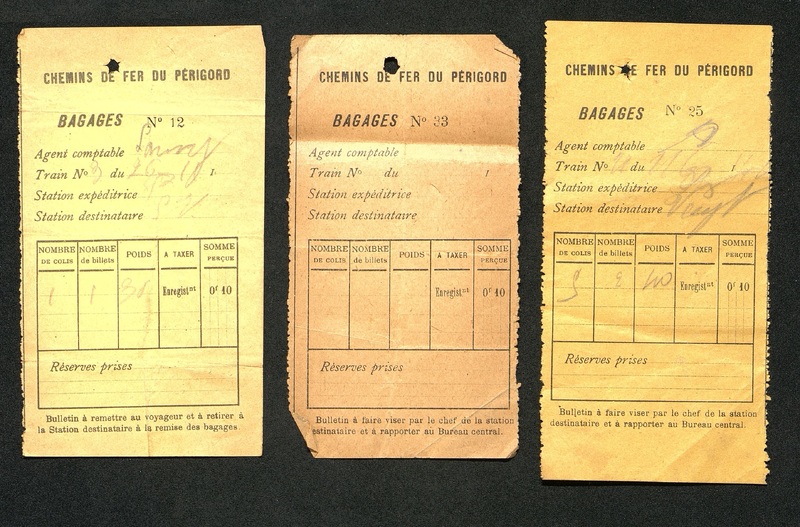 CHEMINS DE FER DU PÉRIGORD
BAGAGES Nº 12
Agent comptable
Train Nº 3 du
Station expéditrice
Station destinataire
NOMBRE DE COLIS NOMBRE de billets POIDS A TAXER SOMME PERÇUE
1 1 30 Enregistnt 0f 10
Réserves prises
Bulletin à remettre au voyageur et à retirer à
la Station destinataire à la remise des bagages
CHEMINS DE FER DU PÉRIGORD
BAGAGES Nº 33
Agent comptable
Train Nº du 1
Station expéditrice
Station destinataire
NOMBRE DE COLIS NOMBRE de billets POIDS A TAXER SOMME PERÇUE
Enregistnt 0f 10
Réserves prises
Bulletin à faire viser par le chef de la station
estinataire et à rapporter au Bureau central.
CHEMINS DE FER DU PÉRIGORD
BAGAGES Nº 25
Agent comptable
Train Nº 1
Station expéditrice
Station destinataire
NOMBRE DE COLIS NOMBRE de billets POIDS A TAXER SOMME PERÇUE
40 Enregistnt 0f 10
Réserves prises
Bulletin à faire viser par le chef de la station
destinataire et à rapporter au Bureau central.